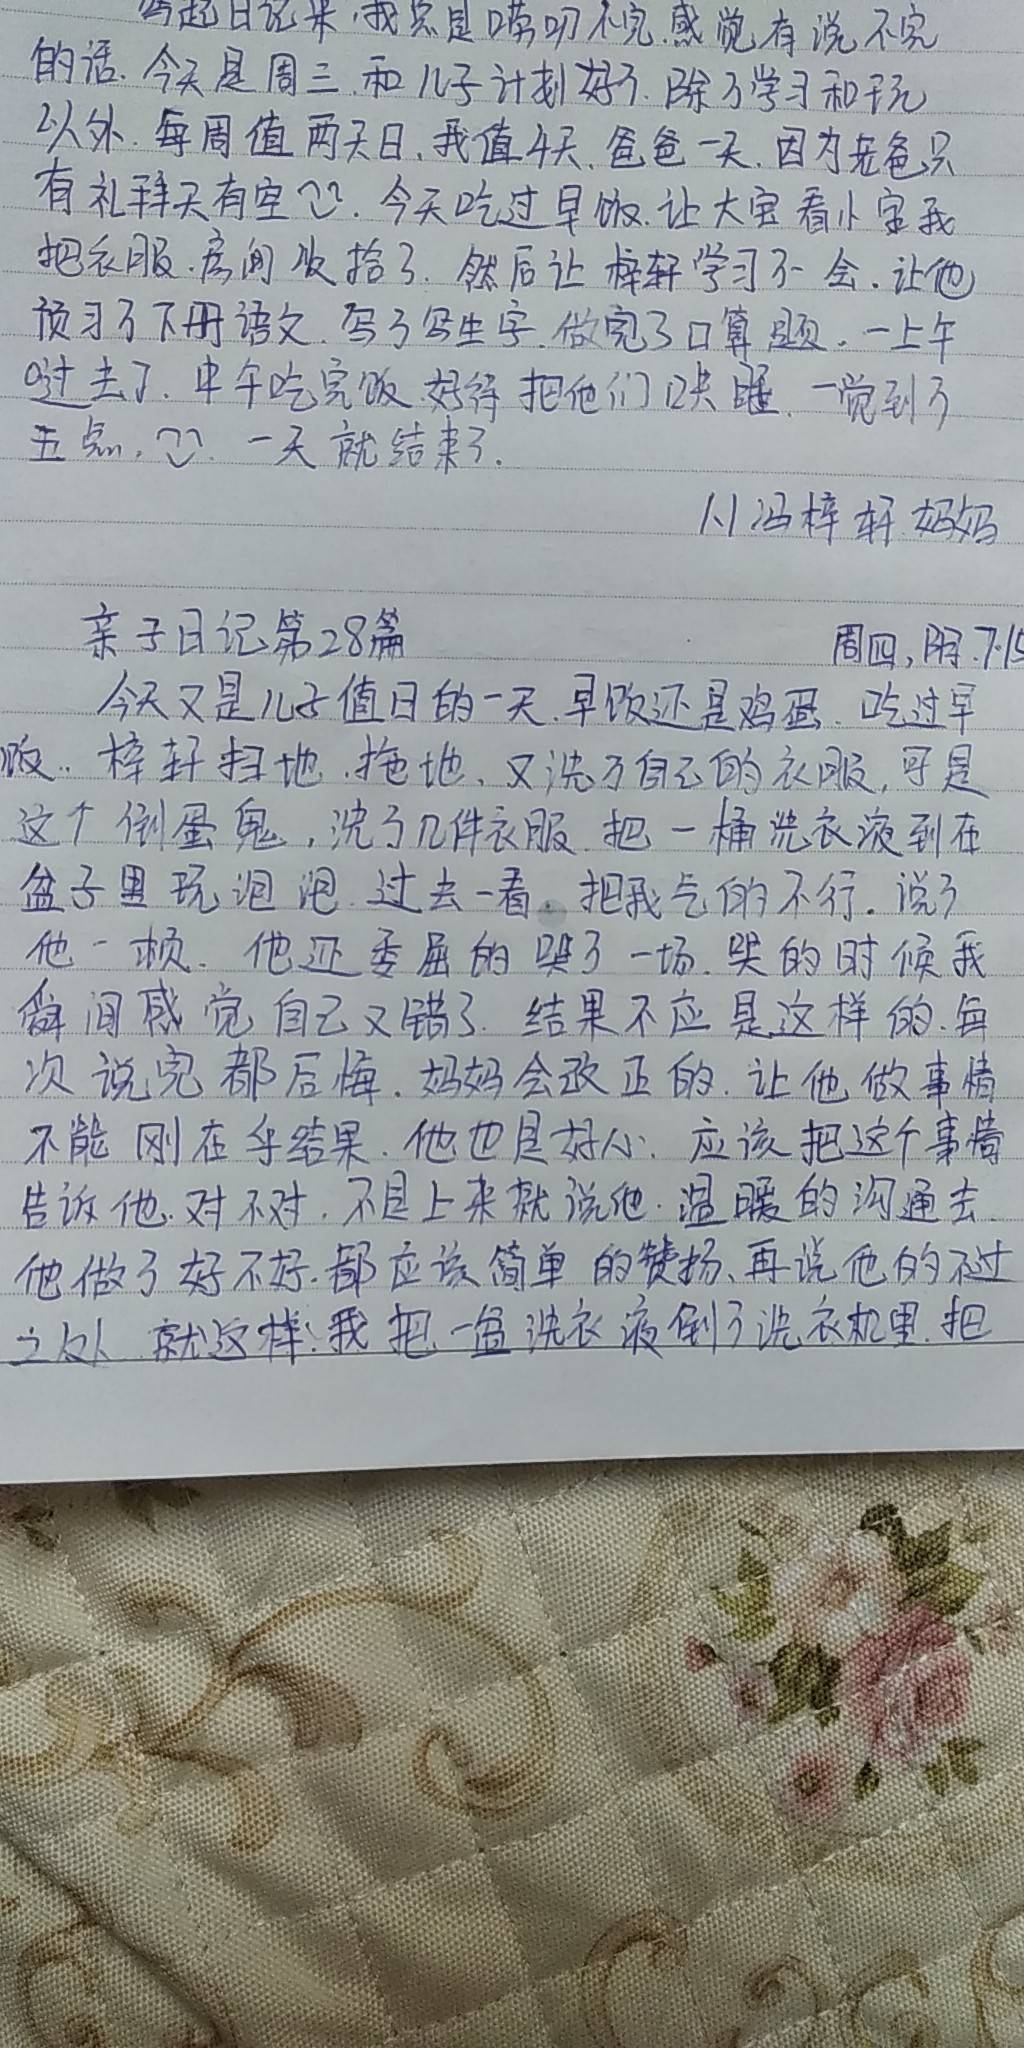 写起日记来,我总是唠叨不完.感觉有说不完
的话.今天是周三.和儿子计划好了.除了学习和玩
以外.每周值两天日、我值4天.爸爸一天.因为老爸只
有礼拜天有空.今天吃过早饭.让大宝看小宝我
把衣服.房间收拾了.然后让梓轩学习了一会.让他
预习了下册语文.写了写生字.做完了口算题.一上午
过去了.中午吃完饭.好得把他们哄睡.一觉到了
五点.一天就结束了.
1.1冯梓轩妈妈
亲子日记第28篇
周四,阴.7.15
今天又是儿子值日的一天.早饭还是鸡蛋.吃过早
饭..梓轩扫地.拖地、又洗了自己的衣服,可是
这个倒蛋鬼,洗了几件衣服.把一桶洗衣液到在
盆子里玩泡泡.过去一看.把我气的不行.说了
他一顿.他还委屈的哭了一场.哭的时候我
瞬间感觉自己又错了.结果不应是这样的.每
次说完都后悔.妈妈会改正的.让他做事情
不能刚在乎结果.他也是好心.应该把这个事情
告诉他.对不对.不是上来就说他.温暖的沟通去.
他做了好不好.都应该简单的赞扬、再说他的不过
之处.就这样.我把一盆洗衣液倒了洗衣机里.把